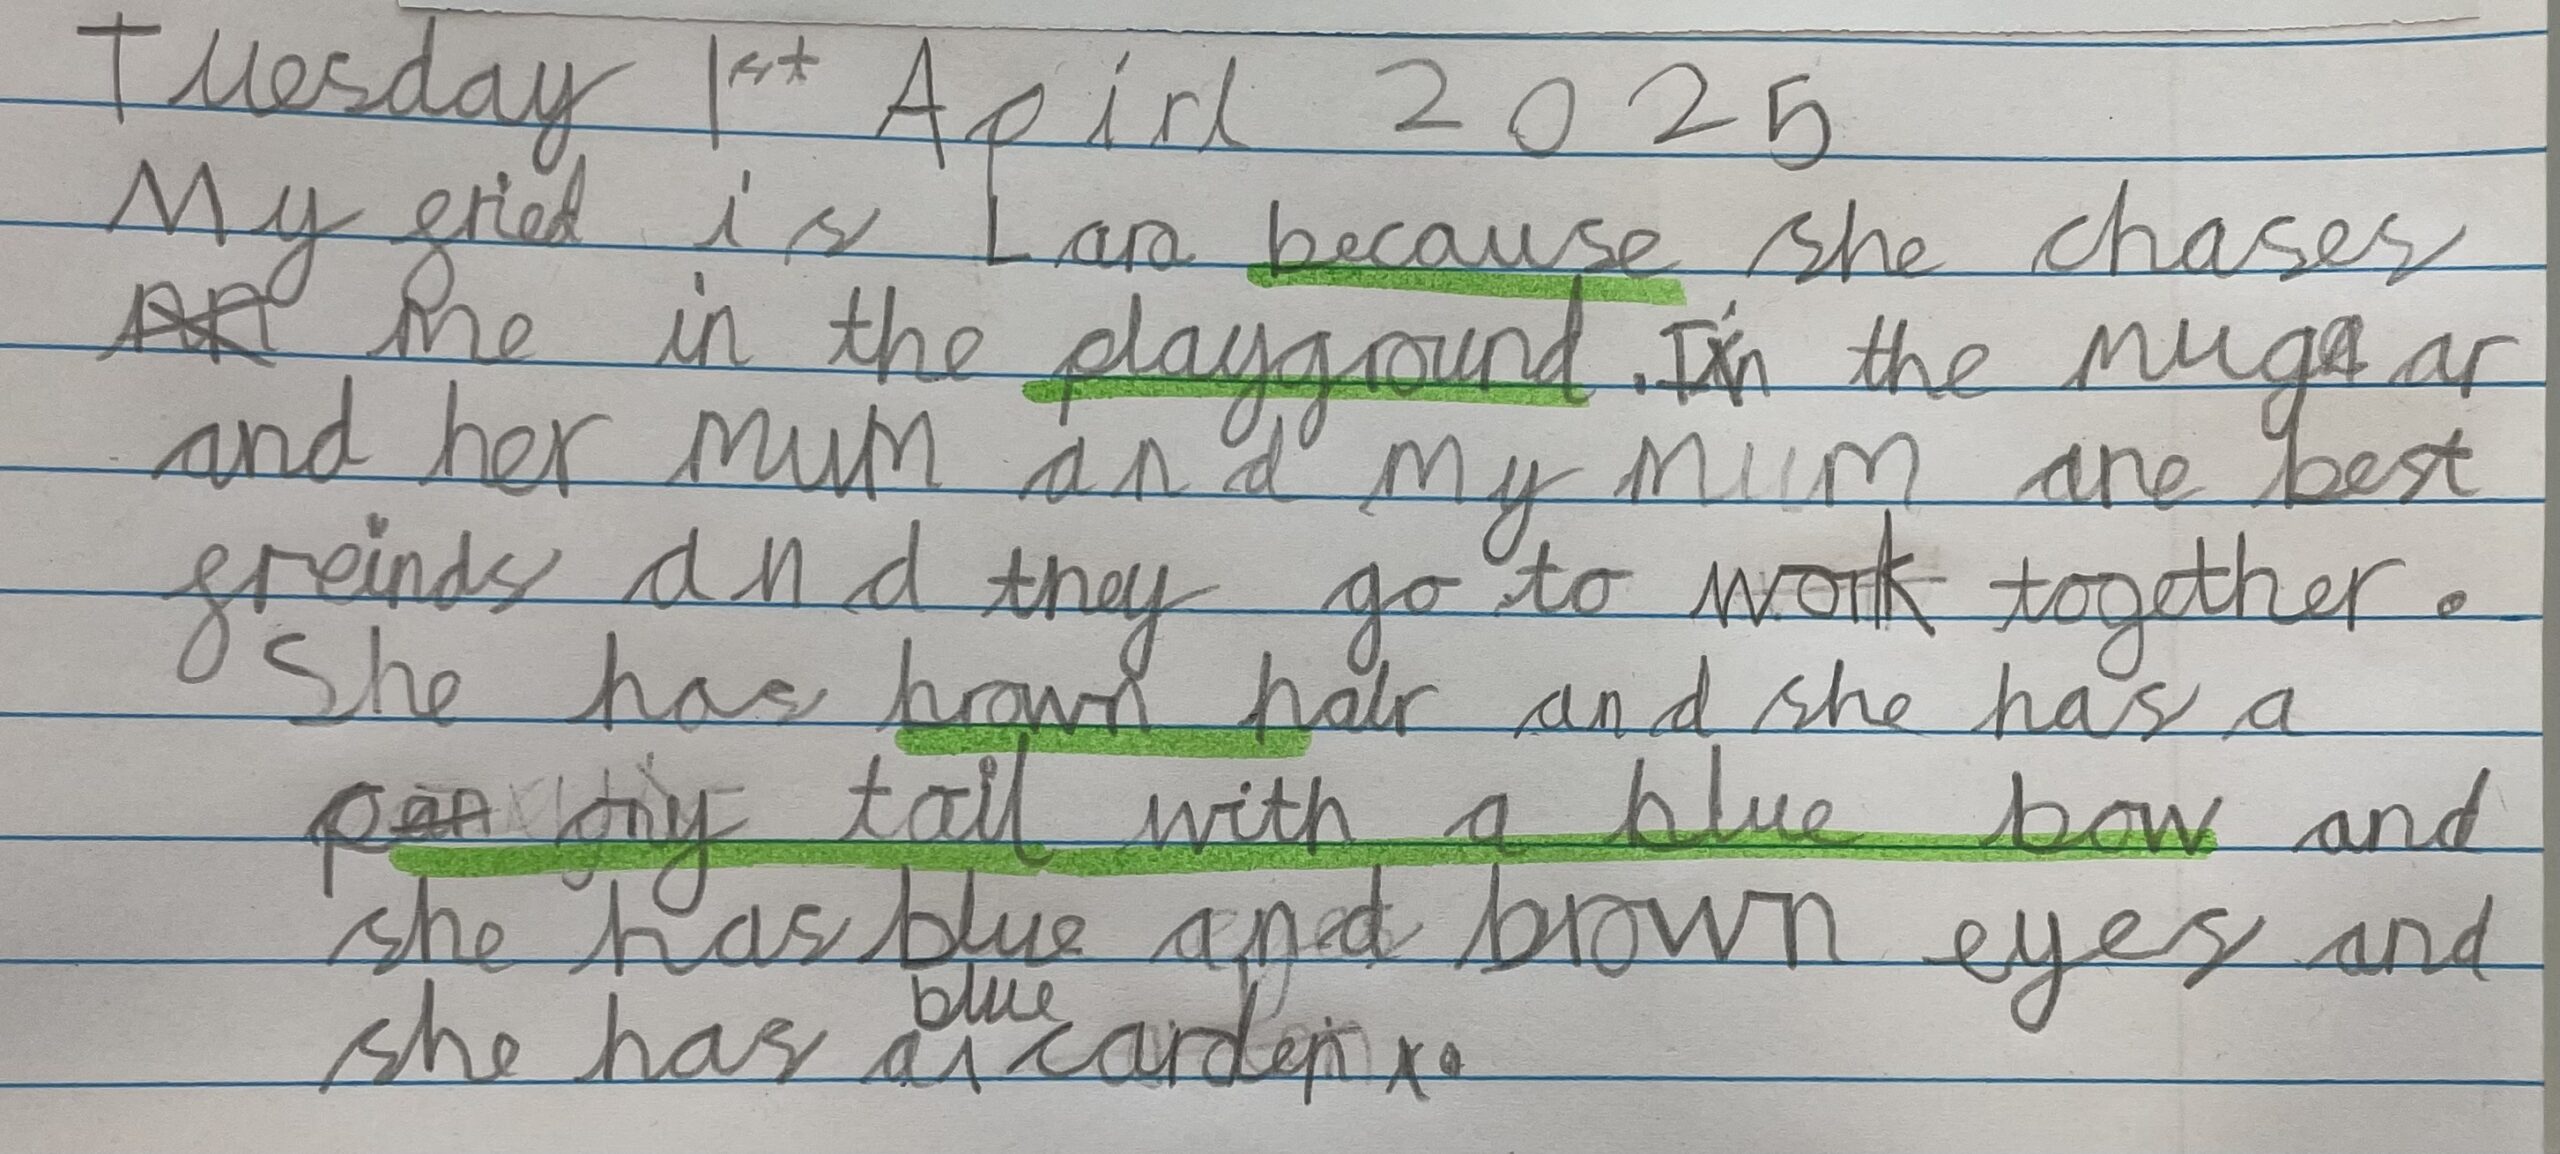 Tuesday 1st Apirl 2025
My fried is Lara because she chases
me in the playground. In the mugaar
and her mum and my mum are best
freinds and they go to work together.
She has brown hair and she has a
pony tail with a blue bow and
she has blue and brown eyes and
blue
she has a carden x.